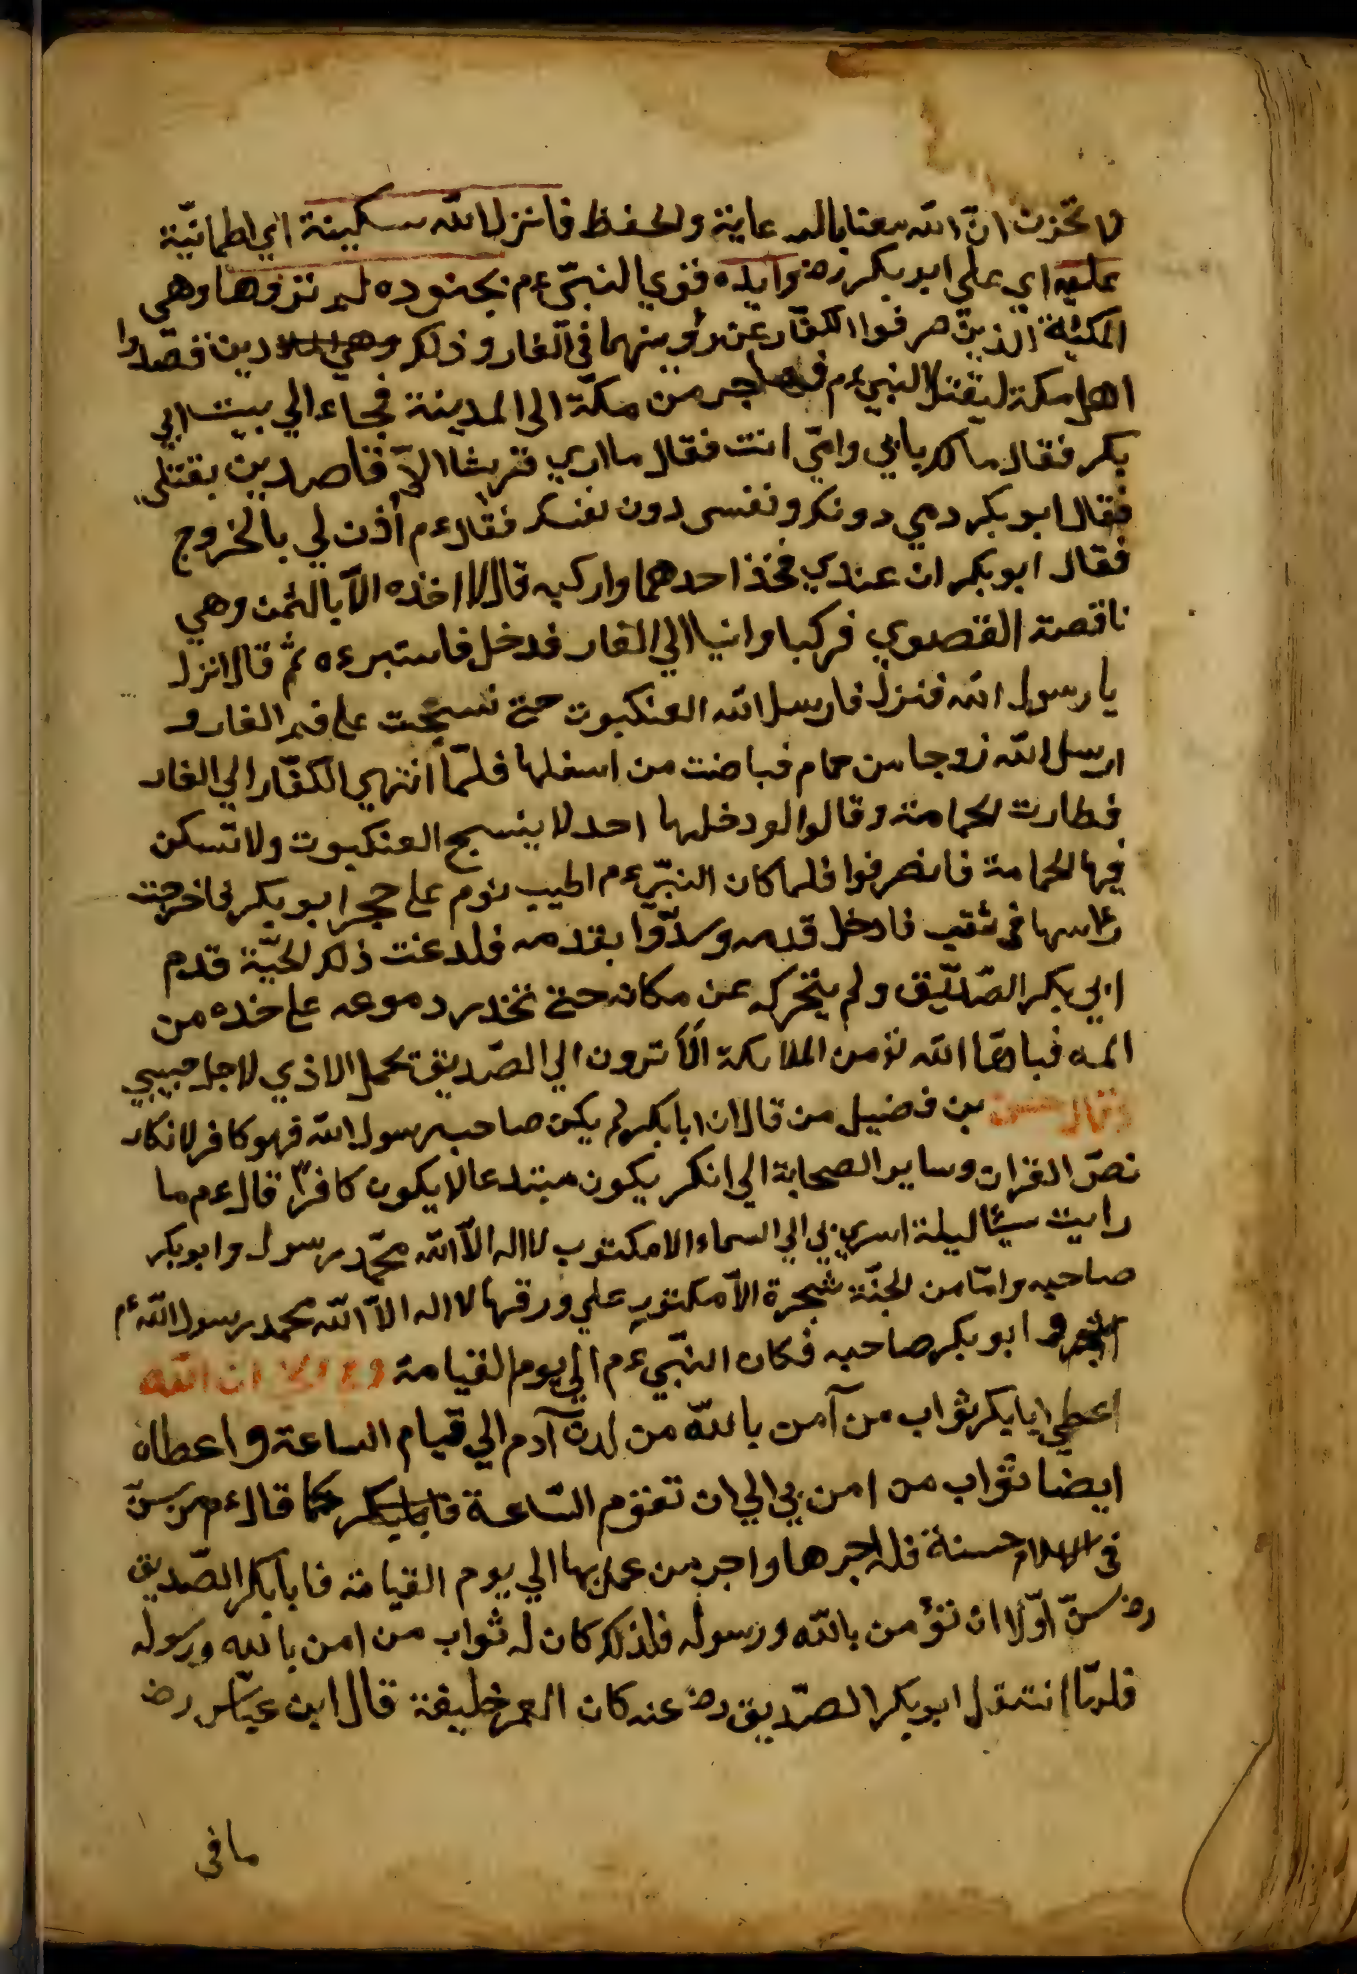 لا تحزن ان الله معنا بالرعاية والحفظ فانزل الله سكينة اي اطمانيّة
عليه اي علي ابو بكر رضـ وايده فقوي النبيّ عم بجنوده لم تروها وهي
المكئلة الذين صرفوا الكفّار عن رؤيتهما في الغار وذلك دين قصدوا
اهل مكة ليقتل النبي عم فهاجر من مكّة الى المدينة فجاء الي بيت ابي
بكر فقال مالك بابي وامّي انت فقال ما اري قريشا الاّ قاصدين بقتلي
فقال ابو بكر دمي دونك ونفسى دون نفسك فقال عم أذن لي بالخروج
فقال ابو بكر ان عندي فخذ احدهما واركبه قال لا اخذه الاّ بالثمن وهي
ناقصة القصوي فركبا واتيا الي الغار فدخل فاستبرءه ثمّ قال انزل
يا رسول الله فنزل فارسل الله العنكبوت حتى نسجت على فم الغار و
ارسل الله زوجا من حمام فباضت من اسفلها فلمّا انتهي الكفّار الي الغار
فطارت الحمامة وقالوا لو دخلها احد لا ينسج العنكبوت ولا تسكن
فيها الحمامة فانصرفوا فلما كان النبيّ عم اطيب نوم على حجر ابو بكر فاخرجت
رءاسها فى ثقب فادخل قدمه وسدّوا بقدمه فلدغت ذلك الحيّة قدم
ابي بكر الصّدّيق ولم يتحرك عن مكانه حتى تخدر دموعه على خده من
المه فباها الله تؤمن الملايكة الاّ ترون الي الصّديق تحمل الاذي لاجل حبيبي
وقال حسن بن فضيل من قال ان ابا بكر لم يكن صاحب رسول الله فهو كافر لانكار
نصّ القران وساير الصحابة الي انكر يكون مبتدعا لا يكون كافرا قال عم ما
رايت سيئا ليلة اسري بي الي السماء الا مكتوب لا اله الاّ الله محمّد رسول وابو بكر
صاحبه وامّا من الجنّة شجرة الاّ مكتوب علي ورقها لا اله الاّ الله محمد رسول الله عم
وابو بكر صاحبه فكان النبّي عم الي يوم القيامة ان الله
اعطي ابا بكر ثواب من آمن بالله من لدن آدم الي قيام الساعة واعطاه
ايضا ثواب من امن بي الي ان تقوم السّاعة كما قال عم من سنّ
فى الاسلام حسنة فله اجرها واجر من عمل بها الي يوم القيامة فابا بكر الصّديق
رضـ سنّ اوّلا ان تؤمن بالله ورسوله فلذلك كان له ثواب من امن بالله ورسوله
فلمّا انتقل ابو بكر الصّديق رضـ عنه كان العمر خليفة قال ابن عبّاس رضـ
ما فى